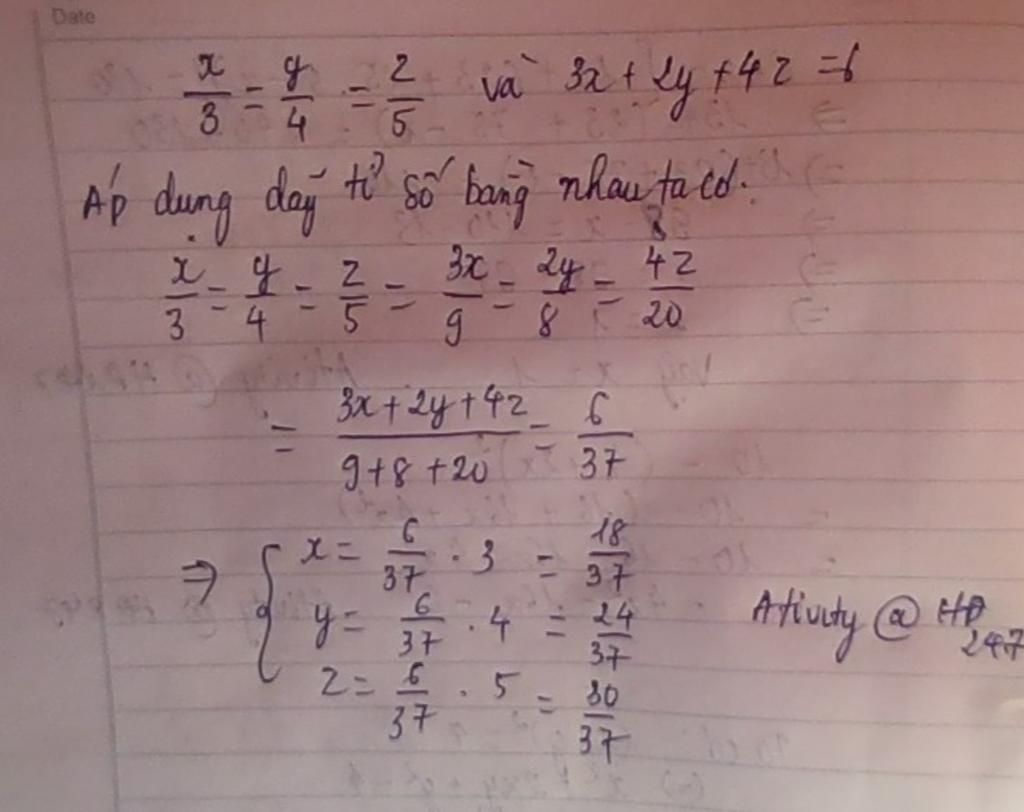 Date
x/3 = y/4 = z/5 và 3x + 2y + 4z = 6
Áp dụng dãy tỉ số bằng nhau ta có:
x/3 = y/4 = z/5 = 3x/9 = 2y/8 = 4z/20
= (3x + 2y + 4z)/(9 + 8 + 20) = 6/37
⇒ { x = 6/37 . 3 = 18/37
y = 6/37 . 4 = 24/37
z = 6/37 . 5 = 30/37
Ativity @ HD 247